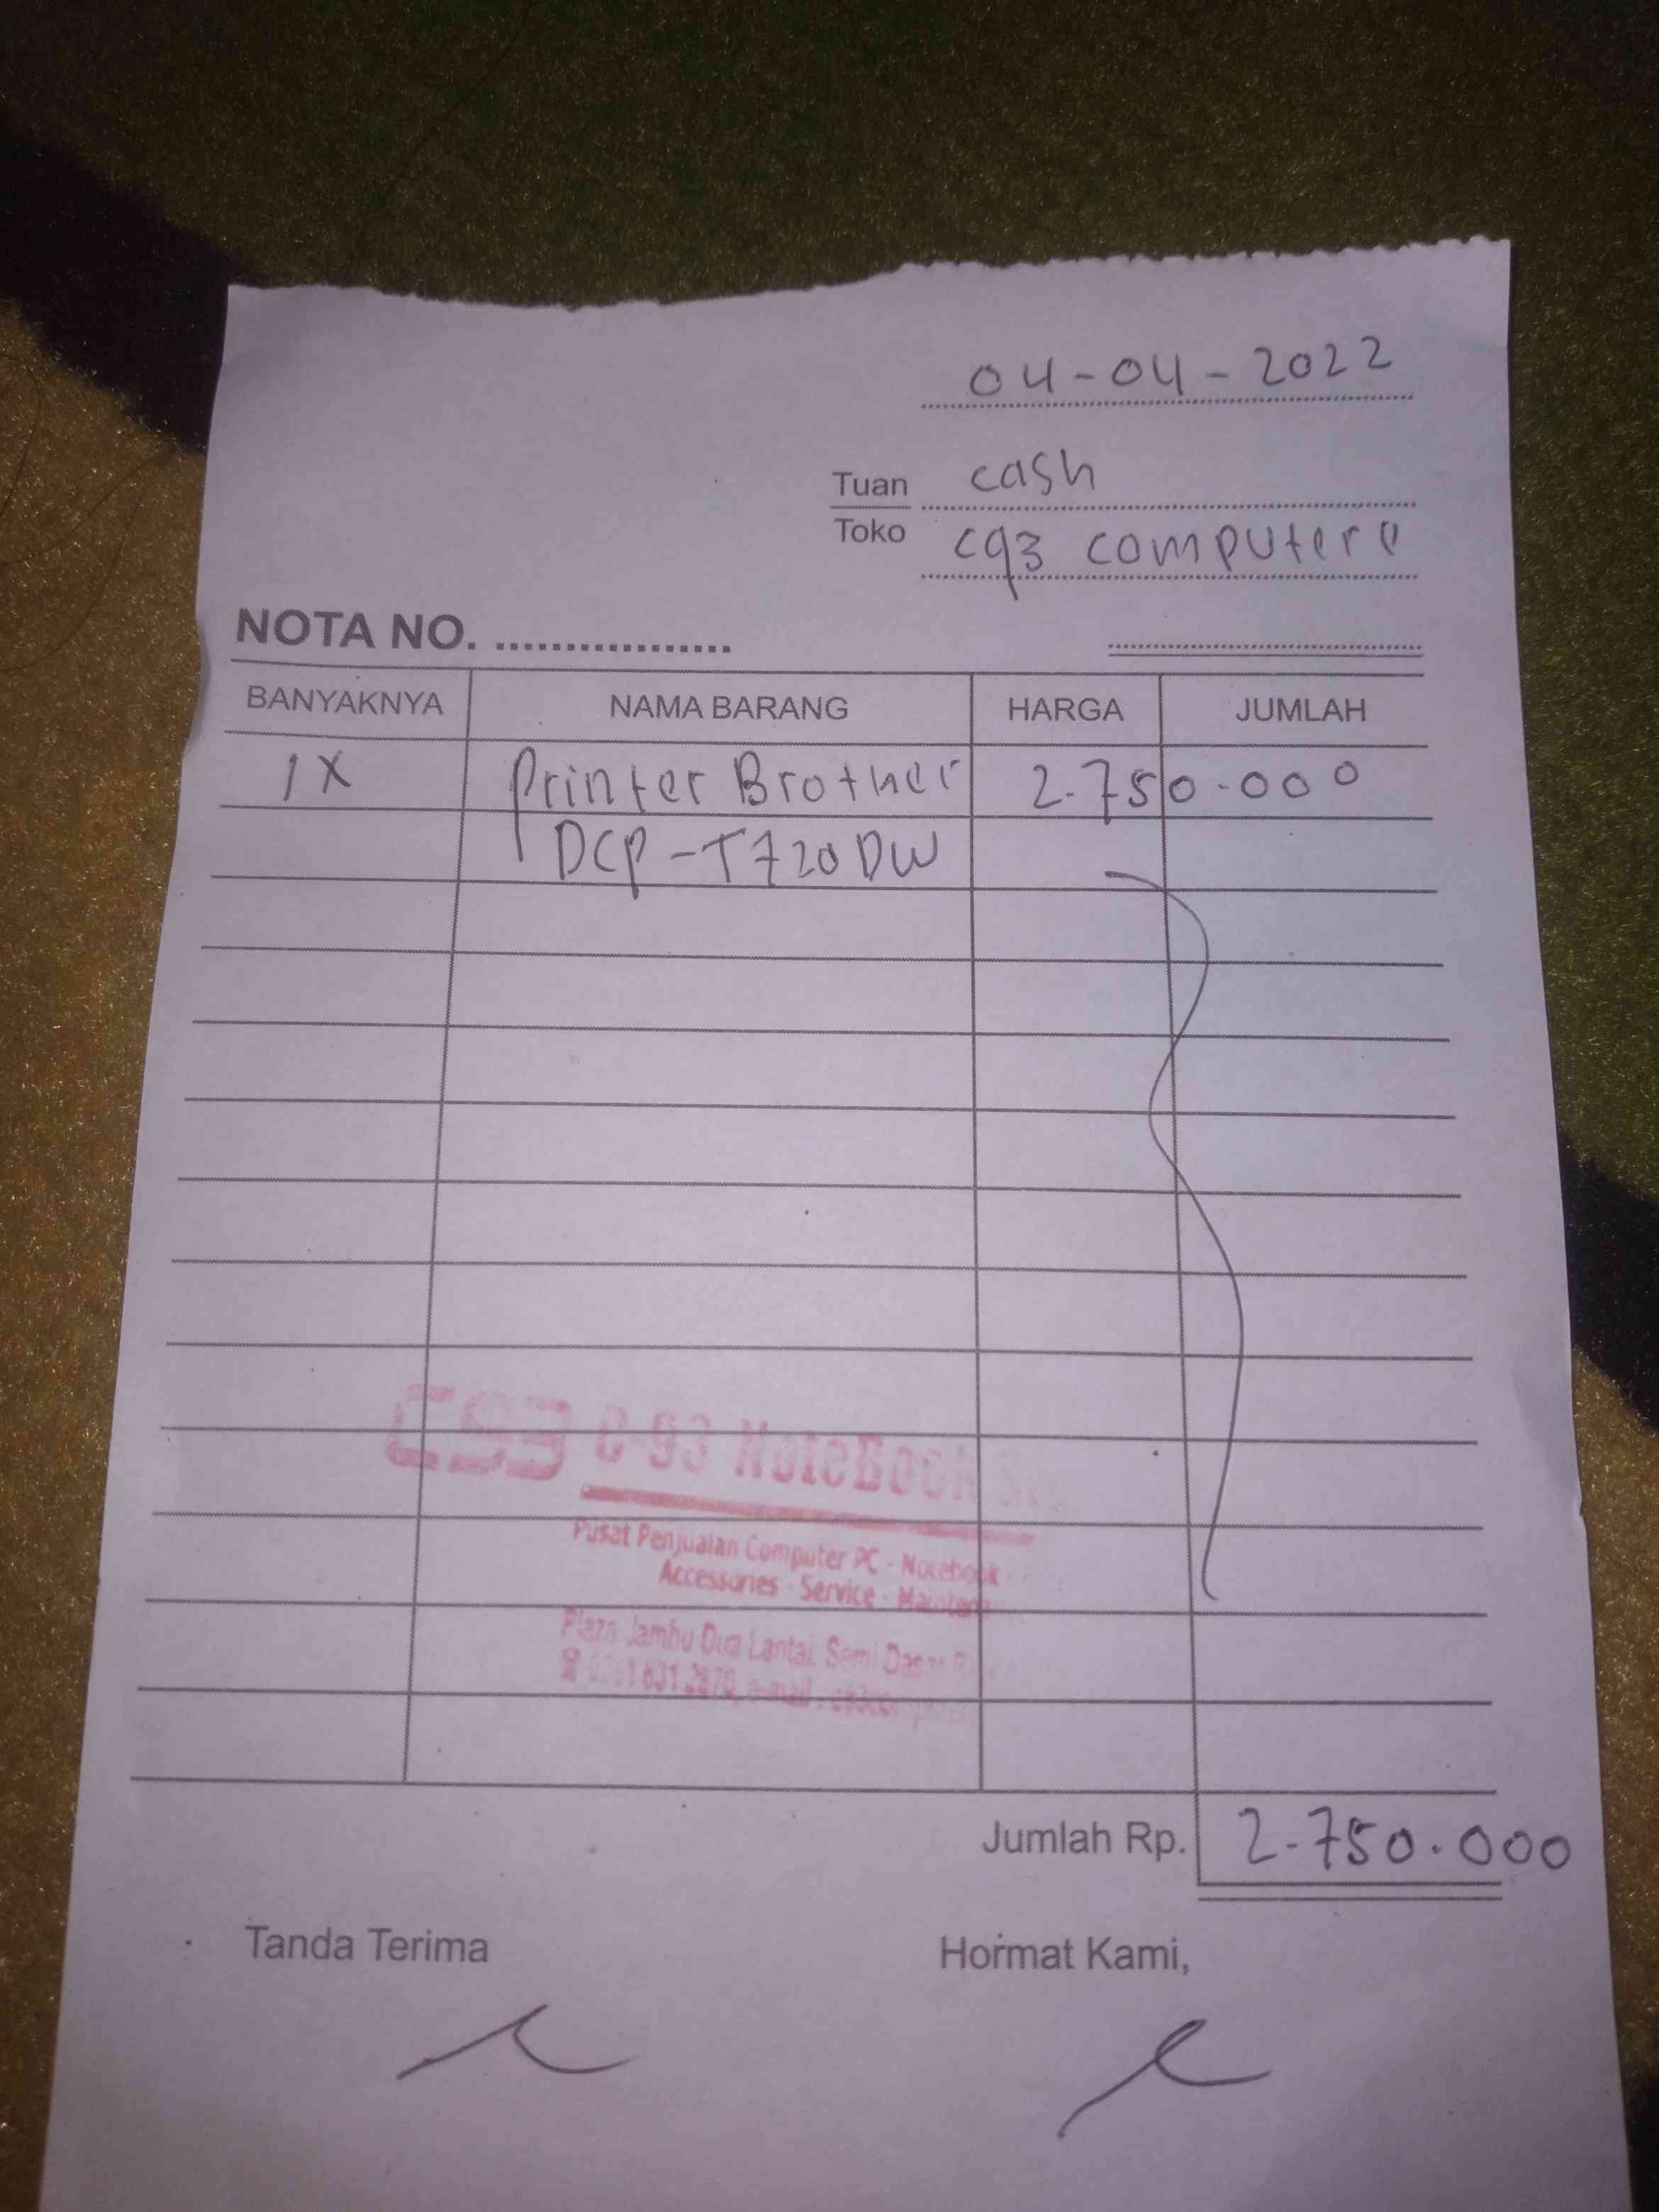 04-04-2022
Tuan cash
Toko c93 computere
NOTA NO. .................
BANYAKNYA NAMA BARANG HARGA JUMLAH
1X Printer Brother 2.750.000
DCP-T720DW
C93 C-93 NoteBook
Pusat Penjualan Computer PC - Notebook
Accessories - Service -
Plaza Jambu Dua Lantai Semi Dasar
e-mail :
Jumlah Rp. 2.750.000
Tanda Terima Hormat Kami,